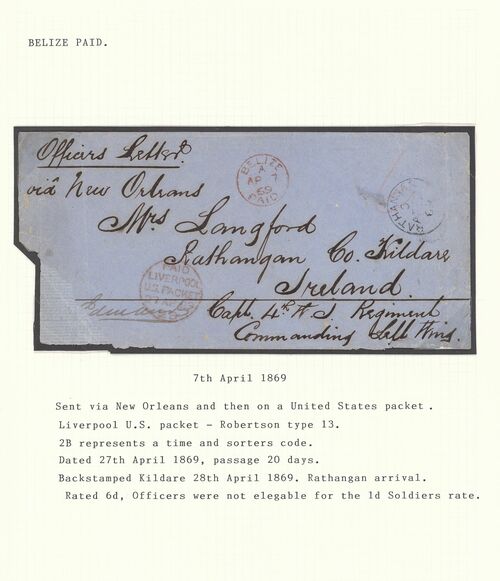 BELIZE PAID.
Officers Letter.
via New Orleans
BELIZE
A
AP 7
69
PAID
RATHANGAN
Mrs Langford
Rathangan Co. Kildare
Ireland
PAID
LIVERPOOL
U.S. PACKET
Capt. 4th W I Regiment
Commanding Left Wing.
7th April 1869
Sent via New Orleans and then on a United States packet.
Liverpool U.S. packet - Robertson type 13.
2B represents a time and sorters code.
Dated 27th April 1869, passage 20 days.
Backstamped Kildare 28th April 1869. Rathangan arrival.
Rated 6d, Officers were not elegable for the 1d Soldiers rate.